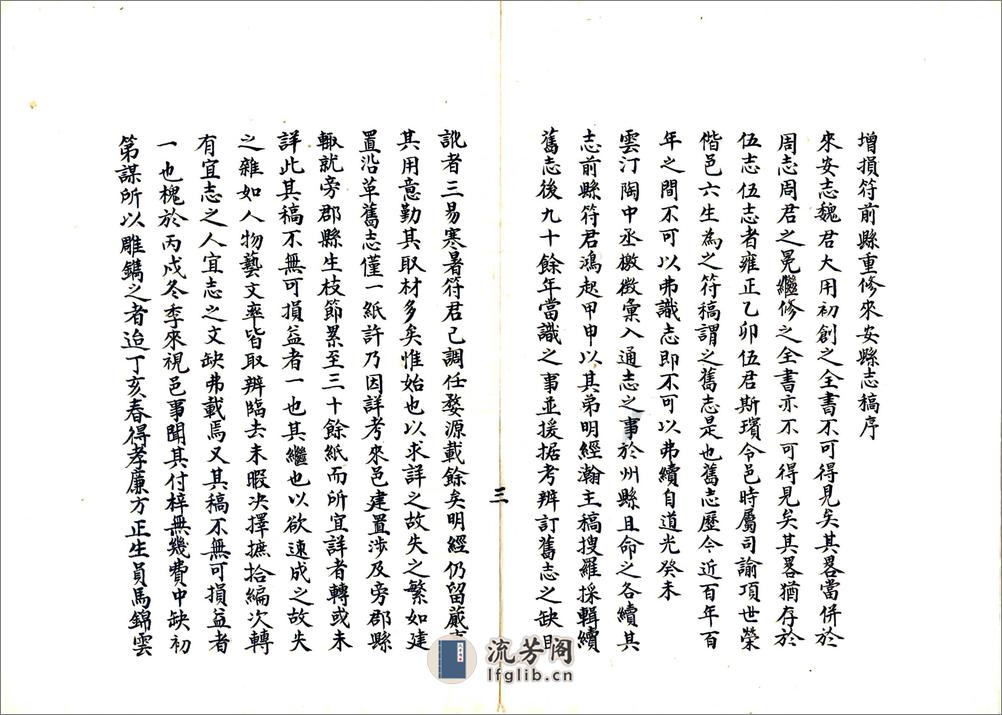 增損符前縣重修來安縣志稿序
來安志魏君大用初創之全書不可得見矣其畧當併於
周志周君之冕繼修之全書亦不可得見矣其畧猶存於
伍志伍志者雍正乙卯伍君斯璸令邑時屬司諭項世榮
偕邑六生為之符稿謂之舊志是也舊志歷今近百年百
年之間不可以弗識志即不可以弗續自道光癸未
雲汀陶中丞檄徵彙入通志之事於州縣且命之各續其
志前縣符君鴻起甲申以其弟明經瀚主稿搜羅採輯續
舊志後九十餘年當識之事並援据考辨訂舊志之缺
訛者三易寒暑符君已調任婺源載餘矣明經仍留蕆
其用意勤其取材多矣惟始也以求詳之故失之繁如建
置沿革舊志僅一紙許乃因詳考來邑建置涉及旁郡縣
輙就旁郡縣生枝節累至三十餘紙而所宜詳者轉或未
詳此其稿不無可損益者一也其繼也以欲速成之故失
之雜如人物藝文率皆取辨臨去未暇决擇摭拾編次轉
有宜志之人宜志之文缺弗載焉又其稿不無可損益者
一也槐於丙戌冬季來視邑事聞其付梓無幾費中缺初
第謀所以雕鐫之者迨丁亥春得孝廉方正生員馬錦雲
三
流芳閣
lfglib.cn